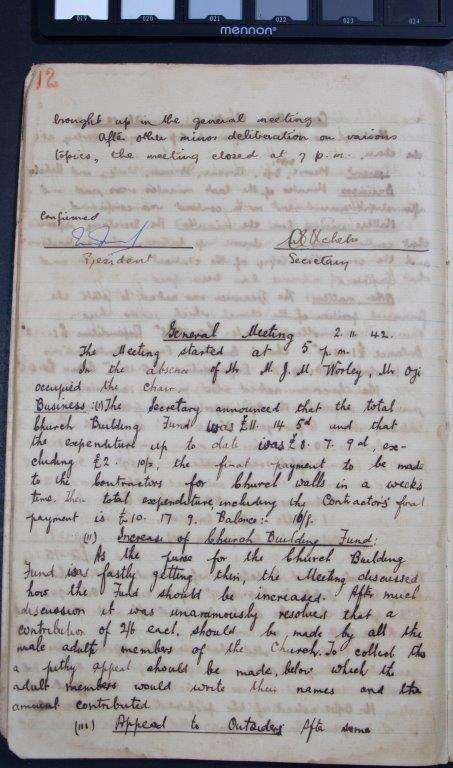 019 020 021 022 023 024
mennon
12
brought up in the general meeting.
After other minor deliberation on various
topics, the meeting closed at 7 p.m.
Confirmed
President Secretary
General Meeting 2. 11. 42.
The Meeting started at 5 p.m.
In the absence of Mr M. J. M. Worley, Mr Oji
occupied the chair.
Business :(i) The Secretary announced that the total
Church Building Fund was £11. 14 5d and that
the expenditure up to date was £8. 7. 9d, ex-
cluding £2. 10/=, the final payment to be made
to the Contractors for Church walls in a week's
time. Then total expenditure, including the Contractor's final
payment is £10. 17 9. Balance:- 16/8.
(ii) Increase of Church Building Fund:
As the purse for the Church Building
Fund was fastly getting thin, the Meeting discussed
how the Fund should be increased. After much
discussion it was unanamously resolved that a
contribution of 2/6 each, should be made by all the
male adult members of the Church. To collect this
a pithy appeal should be made, below which the
adult members would write their names and the
amount contributed
(iii) Appeal to Outsiders After some